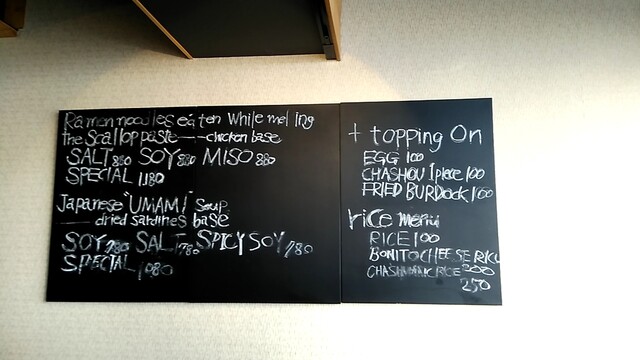 Ramen noodles eaten while melting
the Scallop paste — chicken base
SALT 880 SOY 880 MISO 880
SPECIAL 1180
Japanese "UMAMI" Soup
— dried sardines base
SOY 780 SALT 780 SPICY SOY 780
SPECIAL 1080
+ topping On
EGG 100
CHASHOU 1piece 100
FRIED BURDock 100
rice menu
RICE 100
BONITO CHEESE RICE
RICE 200
250